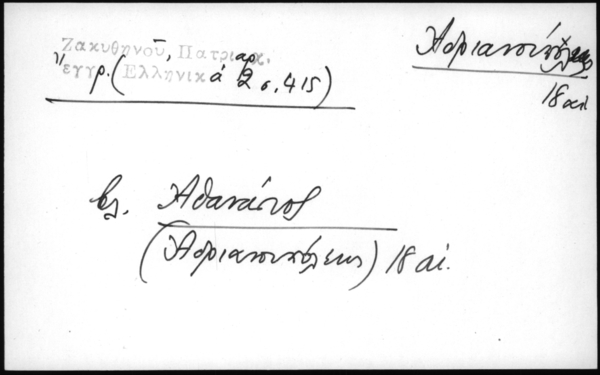 Ζακυθηνοῦ, Πατριαρ.
ἔγγρ. (Ἑλληνικά 2 σ. 415)
Ἀδριανουπόλεως
18 αἰ.
βλ. Ἀθανάσιος
(Ἀδριανουπόλεως) 18 αἰ.